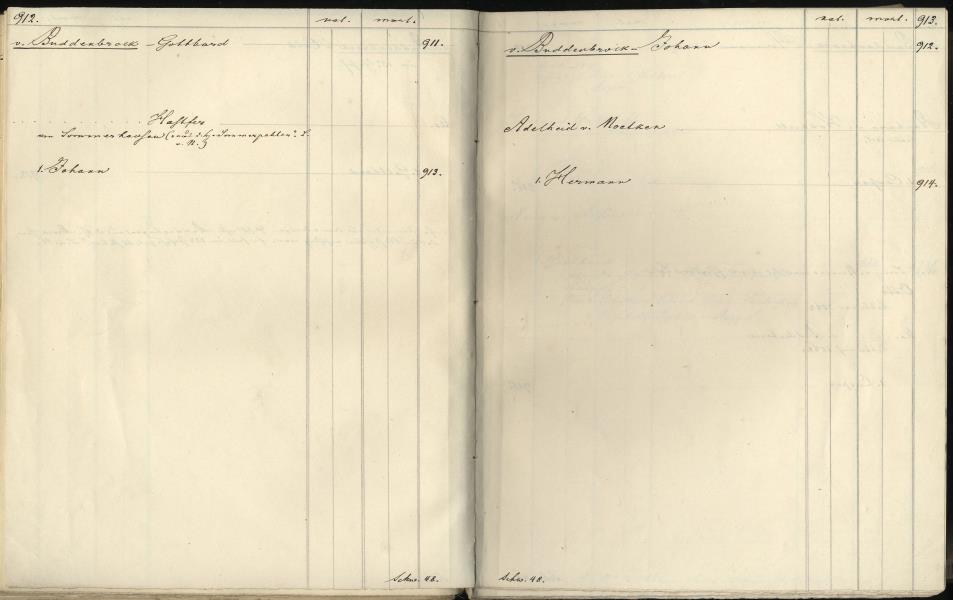 912. nat. mort.
v. Buddenbrock - Gotthard 911.
Hastfer
am Sommerhusen
v. N.)
1. Johann 913.
Schw. 48.
nat. mort. 913.
v. Buddenbrock - Johann 912.
Adelheid v. Noetken
1. Hermann 914.
Schw. 48.